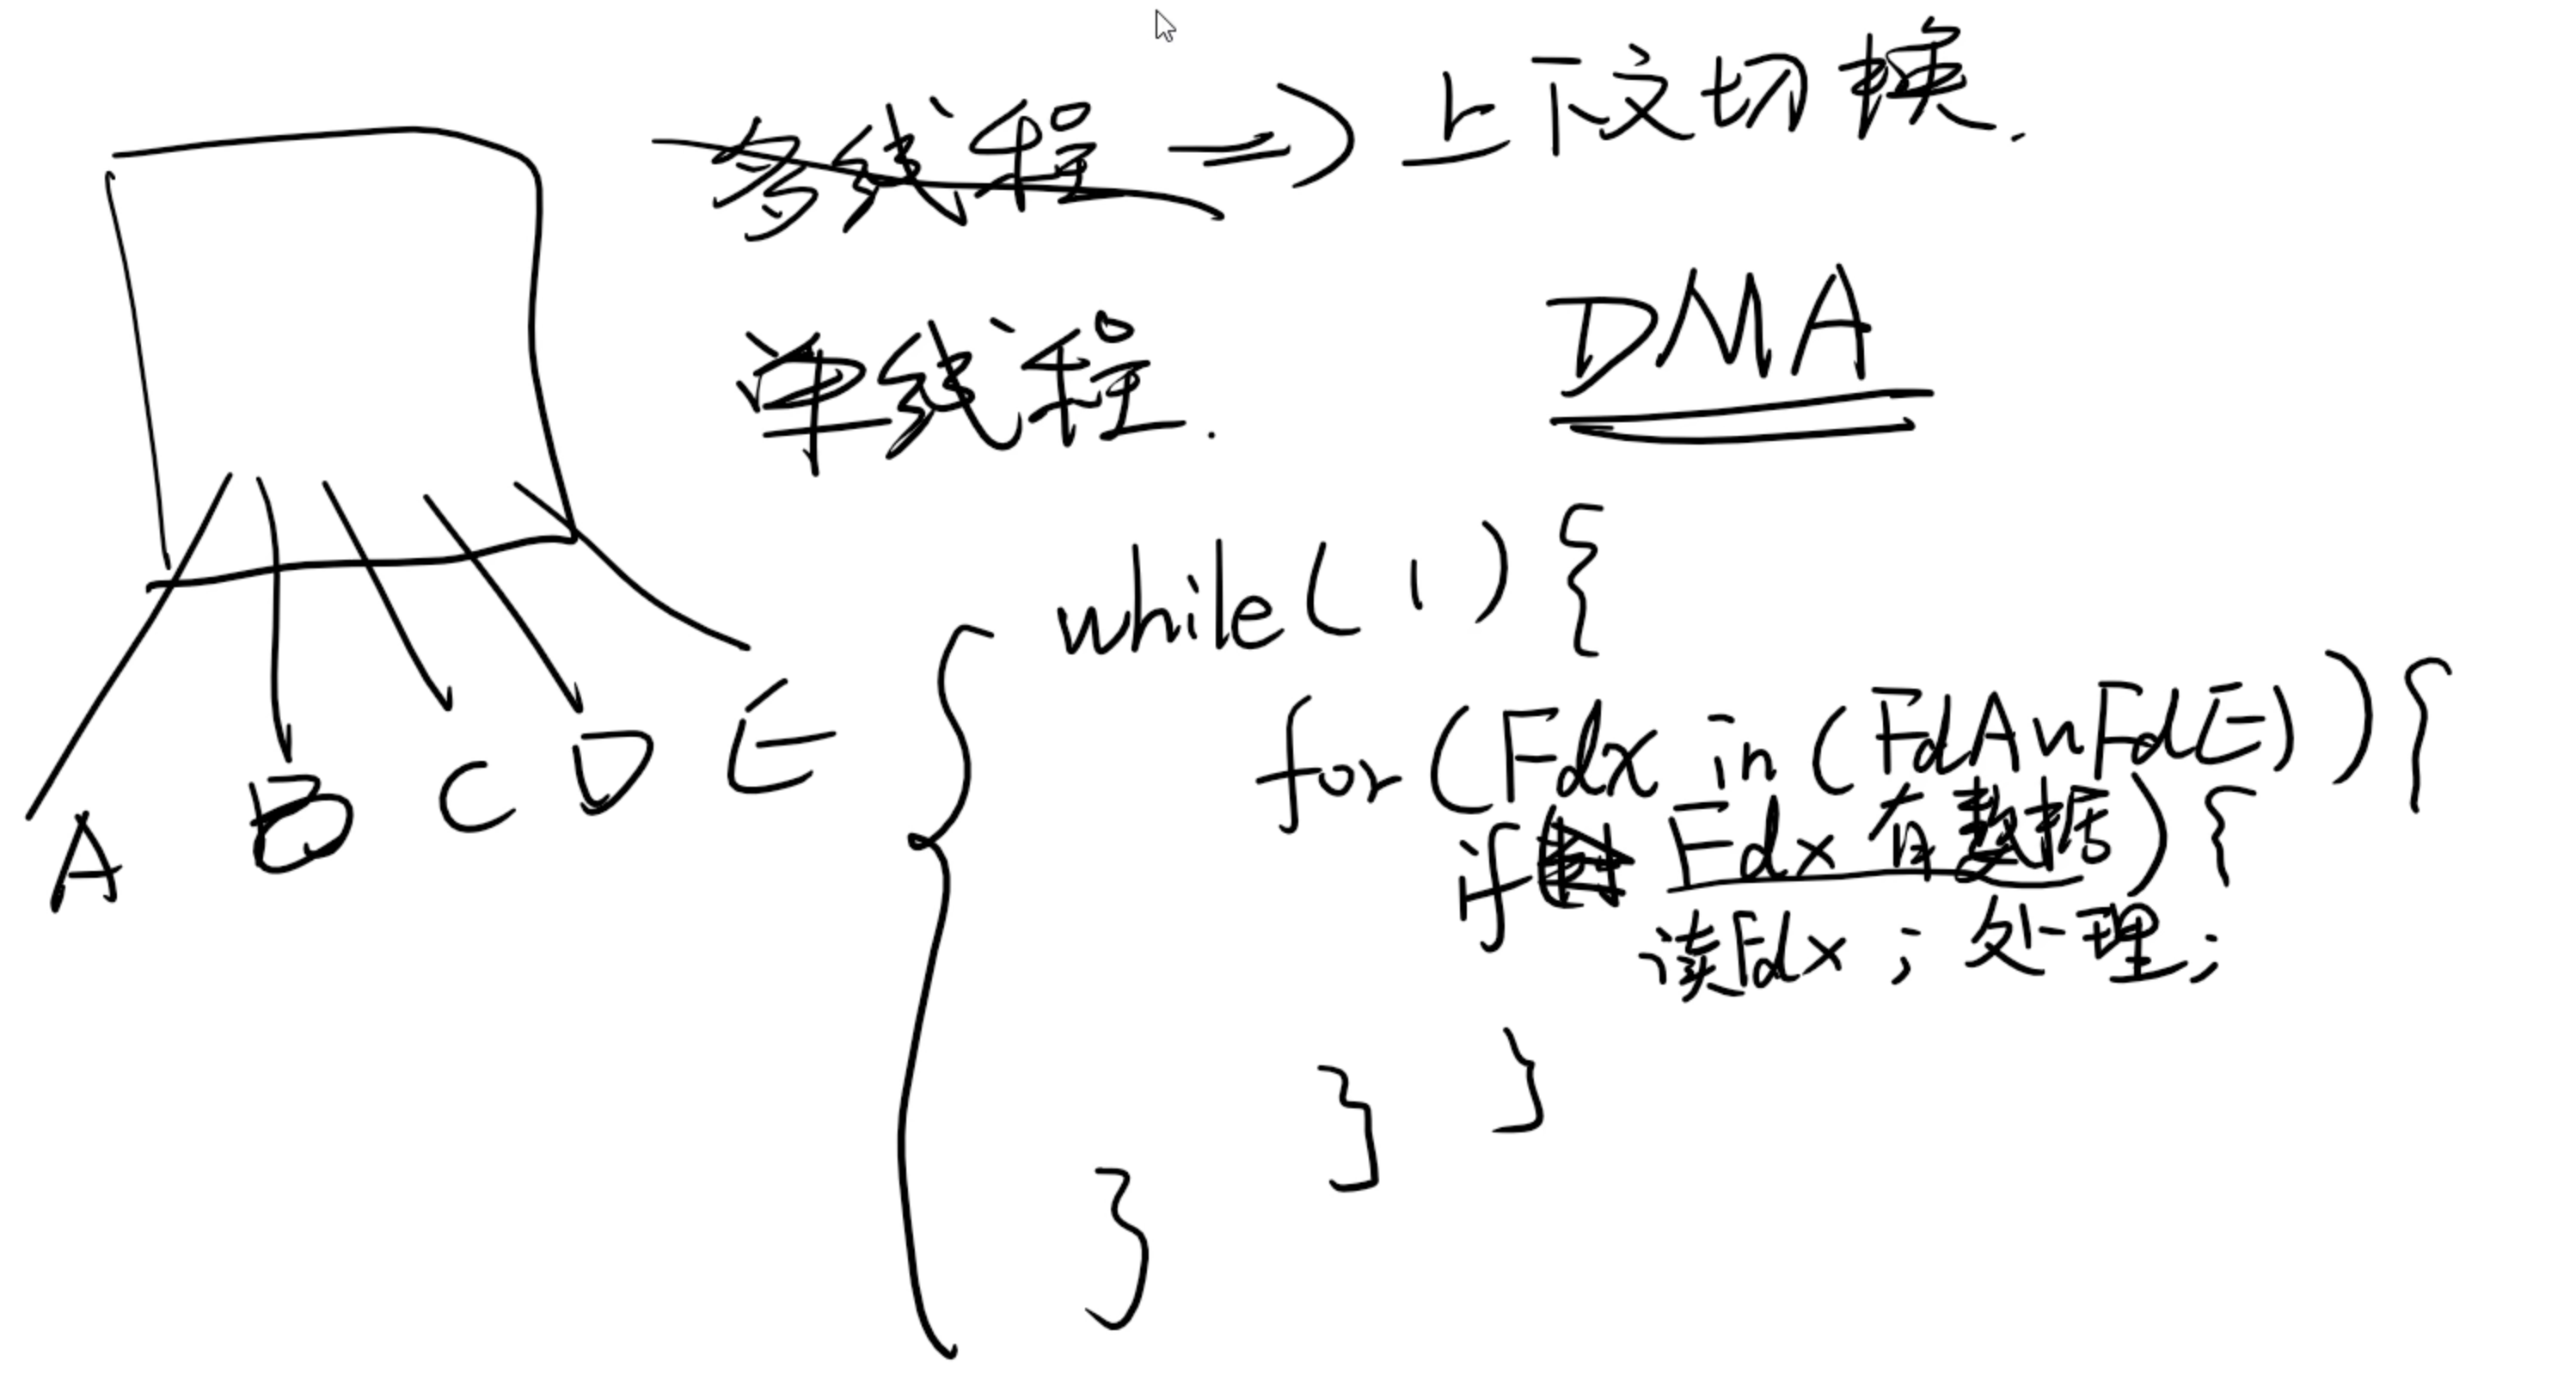 多线程 => 上下文切换.
单线程.
DMA
A B C D E
while(1){
for(Fdx in (FdA~FdE)){
if Fdx 有数据){
读Fdx; 处理;
}
}
}